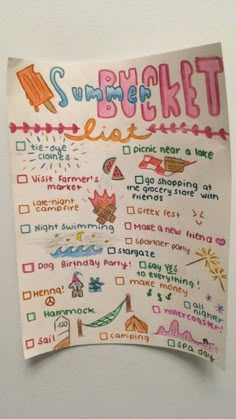 Summer BUCKET
list
tie-dye clothes
picnic near a lake
Visit farmer's market
go shopping at the grocery store with friends
late-night campfire
Greek fest
Night swimming
Make a new friend
sparkler party
stargaze
Dog Birthday Party!
say YES to everything!
Henna!
Make money
$ $ $
all nighter
Hammock
roller coasters
Sail
camping
spa day